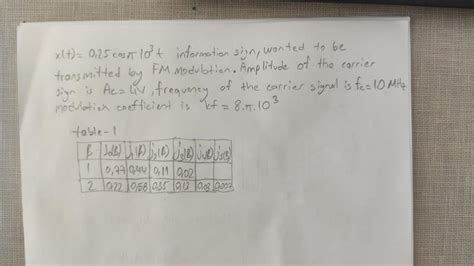 x(t)= 0,25 cosπ10³t information sign, wanted to be
transmitted by FM modulation. Amplitude of the carrier
sign is Ac=4V, frequency of the carrier signal is fc=10 MHz
modulation coefficient is kf = 8.π.10³
table-1
β J0(β) J1(β) J2(β) J3(β) J4(β) J5(β)
1 0,77 0,44 0,11 0,02
2 0,22 0,58 0,35 0,13 0,03 0,007